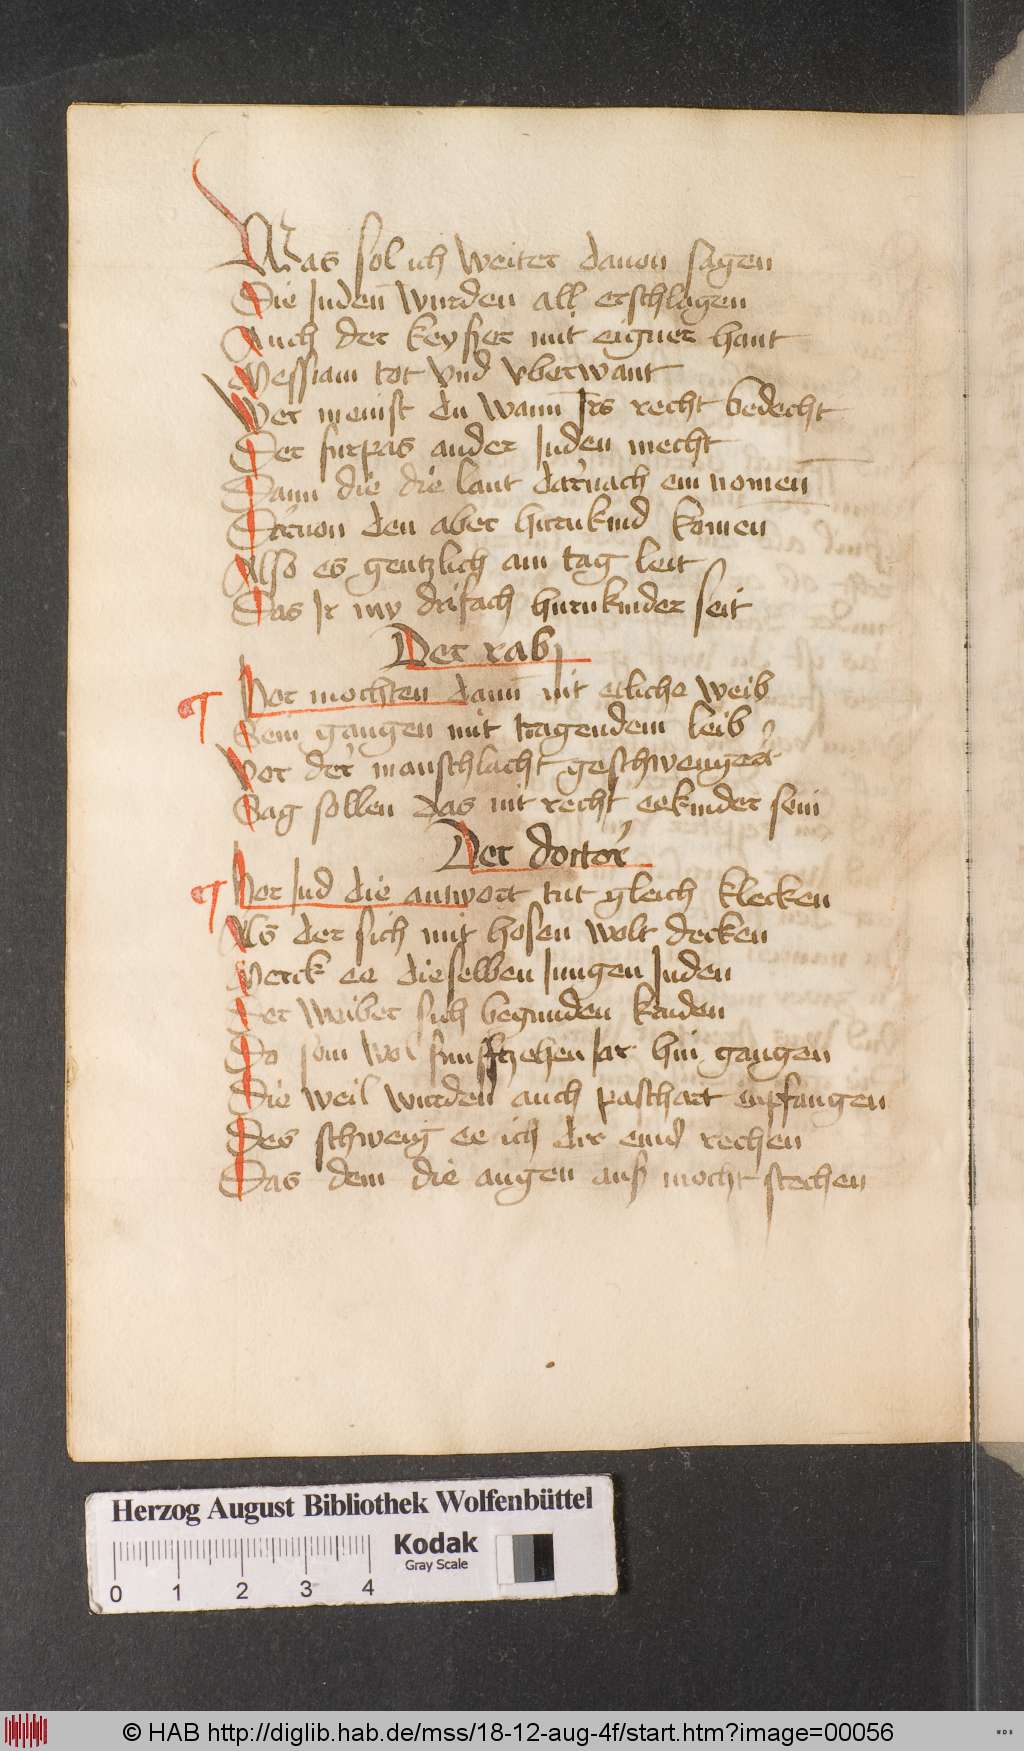 Was sol ich weiter dauon sagen
Die Juden wurden all erschlagen
Auch der keyser mit eigner hant
Messiam tot vnd vberwant
Wer meinst du wann Irs recht bedecht
Der furpas ander Juden mecht
Dann die die laut darnach ein nomen
Daruon den aber hurnkind komen
Also es gentzlich am tag leit
Das Ir nw drifach hurnkinder seit
Der rabj
Hor mochten dann nit etliche weib
Sein gangen mit tragendem leib
Vor der manschlacht geschwengert
Sag sollen das nit recht eekinder sein
Der doctor
Hor Jud die antwort tut gleich klecken
Als der sich mit hosen wolt decken
Merck ee dieselben Jungen Juden
Der weiber sich begunden kruden
Do sein wol funfftzehen Jar hin gangen
Die weil wurden auch paschart enpfangen
Des schweig ee ich dir eins rechen
Das dem die augen auß mocht stechen
Herzog August Bibliothek Wolfenbüttel
Kodak
Gray Scale
0 1 2 3 4
© HAB http://diglib.hab.de/mss/18-12-aug-4f/start.htm?image=00056